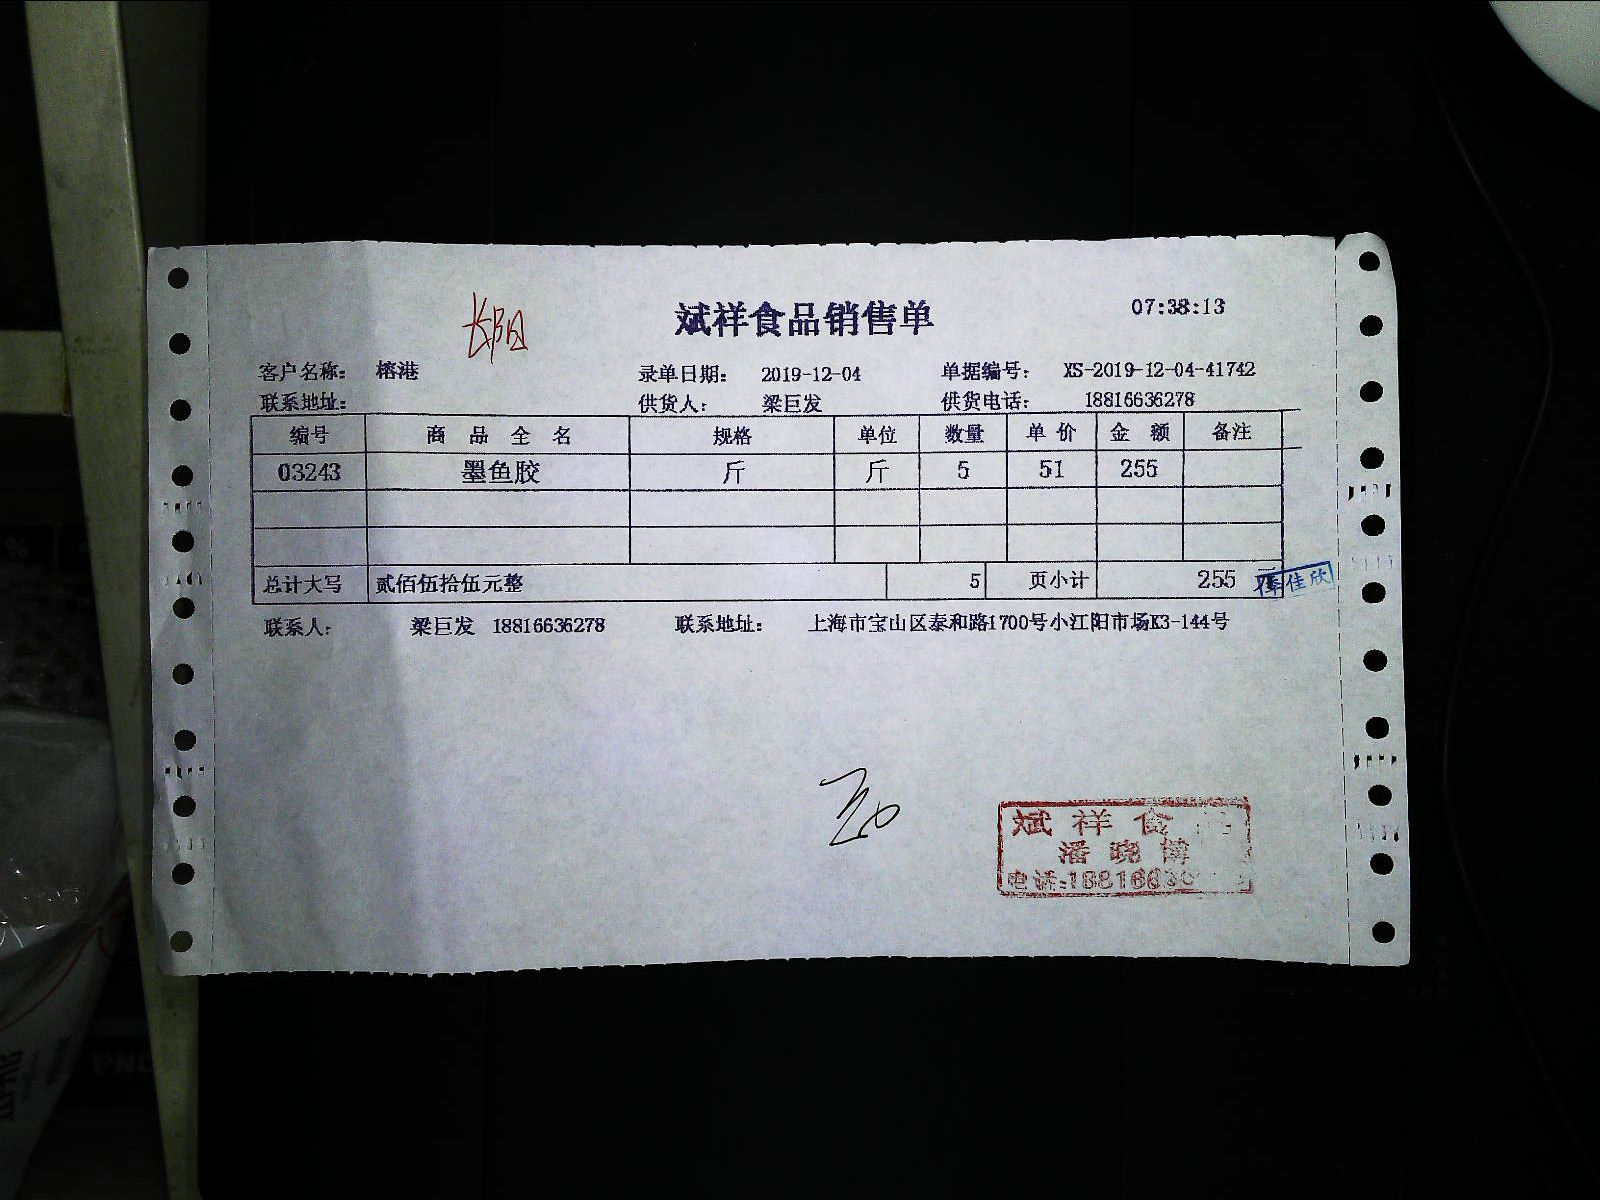 斌祥食品销售单
07:38:13
长阳
客户名称: 榕港 录单日期: 2019-12-04 单据编号: XS-2019-12-04-41742
联系地址: 供货人: 梁巨发 供货电话: 18816636278
编号 商品全名 规格 单位 数量 单价 金额 备注
03243 墨鱼胶 斤 斤 5 51 255
总计大写 贰佰伍拾伍元整 5 页小计 255
佳欣
联系人: 梁巨发 18816636278 联系地址: 上海市宝山区泰和路1700号小江阳市场K3-144号
斌祥食
潘晓博
电话:18816636